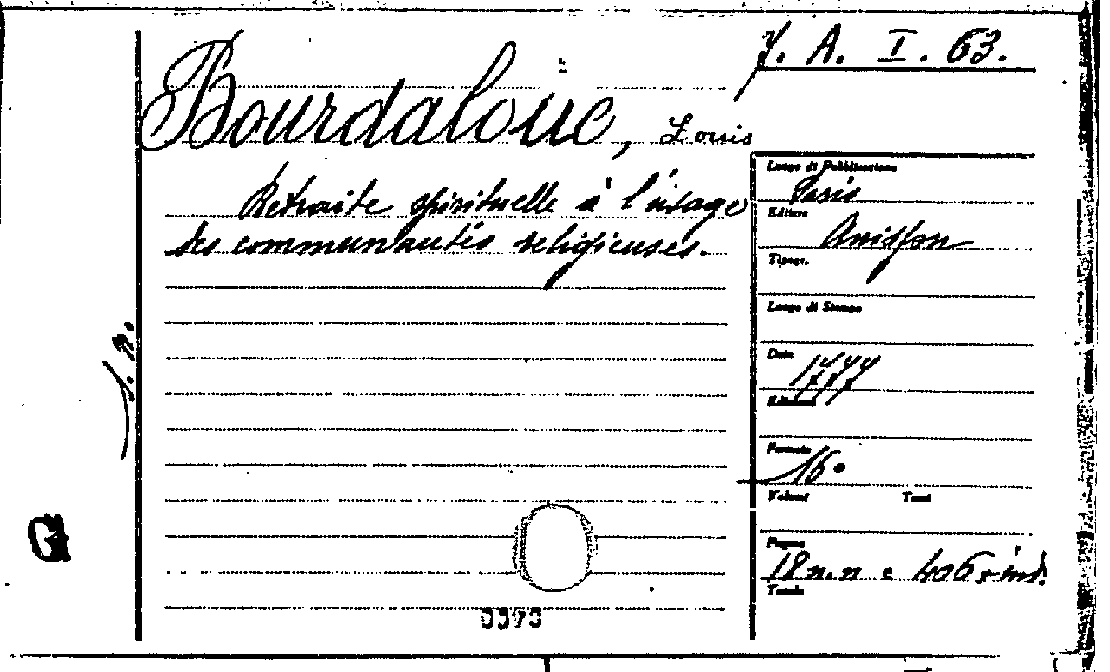 7. A. I. 63.
Bourdaloue, Louis
Retraite spirituelle à l'usage
des communautés religieuses.
Luogo di Pubblicazione
Paris
Editore
Anisson
Tipogr.
Luogo di Stampa
Data
1777
Edizione
Formato
16°
Volumi Tomi
Pagine
18 n.n e 406 + ind.
Tavole